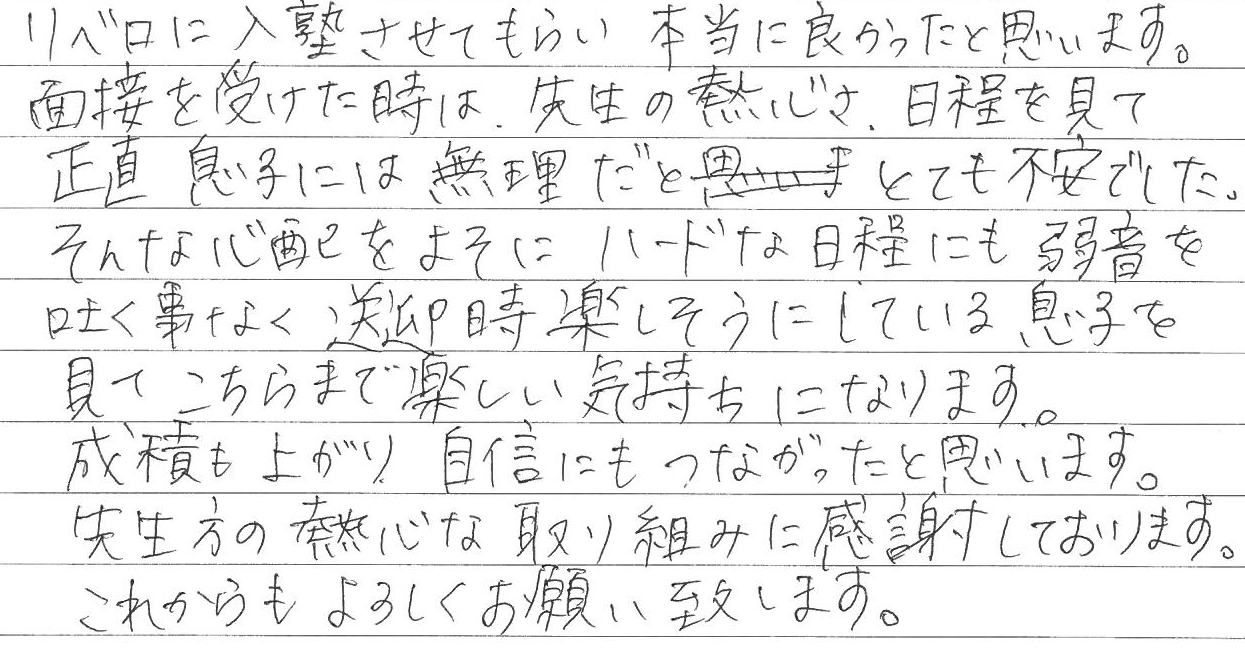 リベロに入塾させてもらい 本当に良かったと思います。
面接を受けた時は、先生の熱心さ、日程を見て
正直 息子には無理だと とても不安でした。
そんな心配をよそに ハードな日程にも 弱音を
吐く事なく 送迎時 楽しそうにしている 息子を
見て こちらまで楽しい 気持ちになります。
成積も上がり 自信にもつながったと思います。
先生方の 熱心な 取り組みに感謝しております。
これからも よろしくお願い致します。